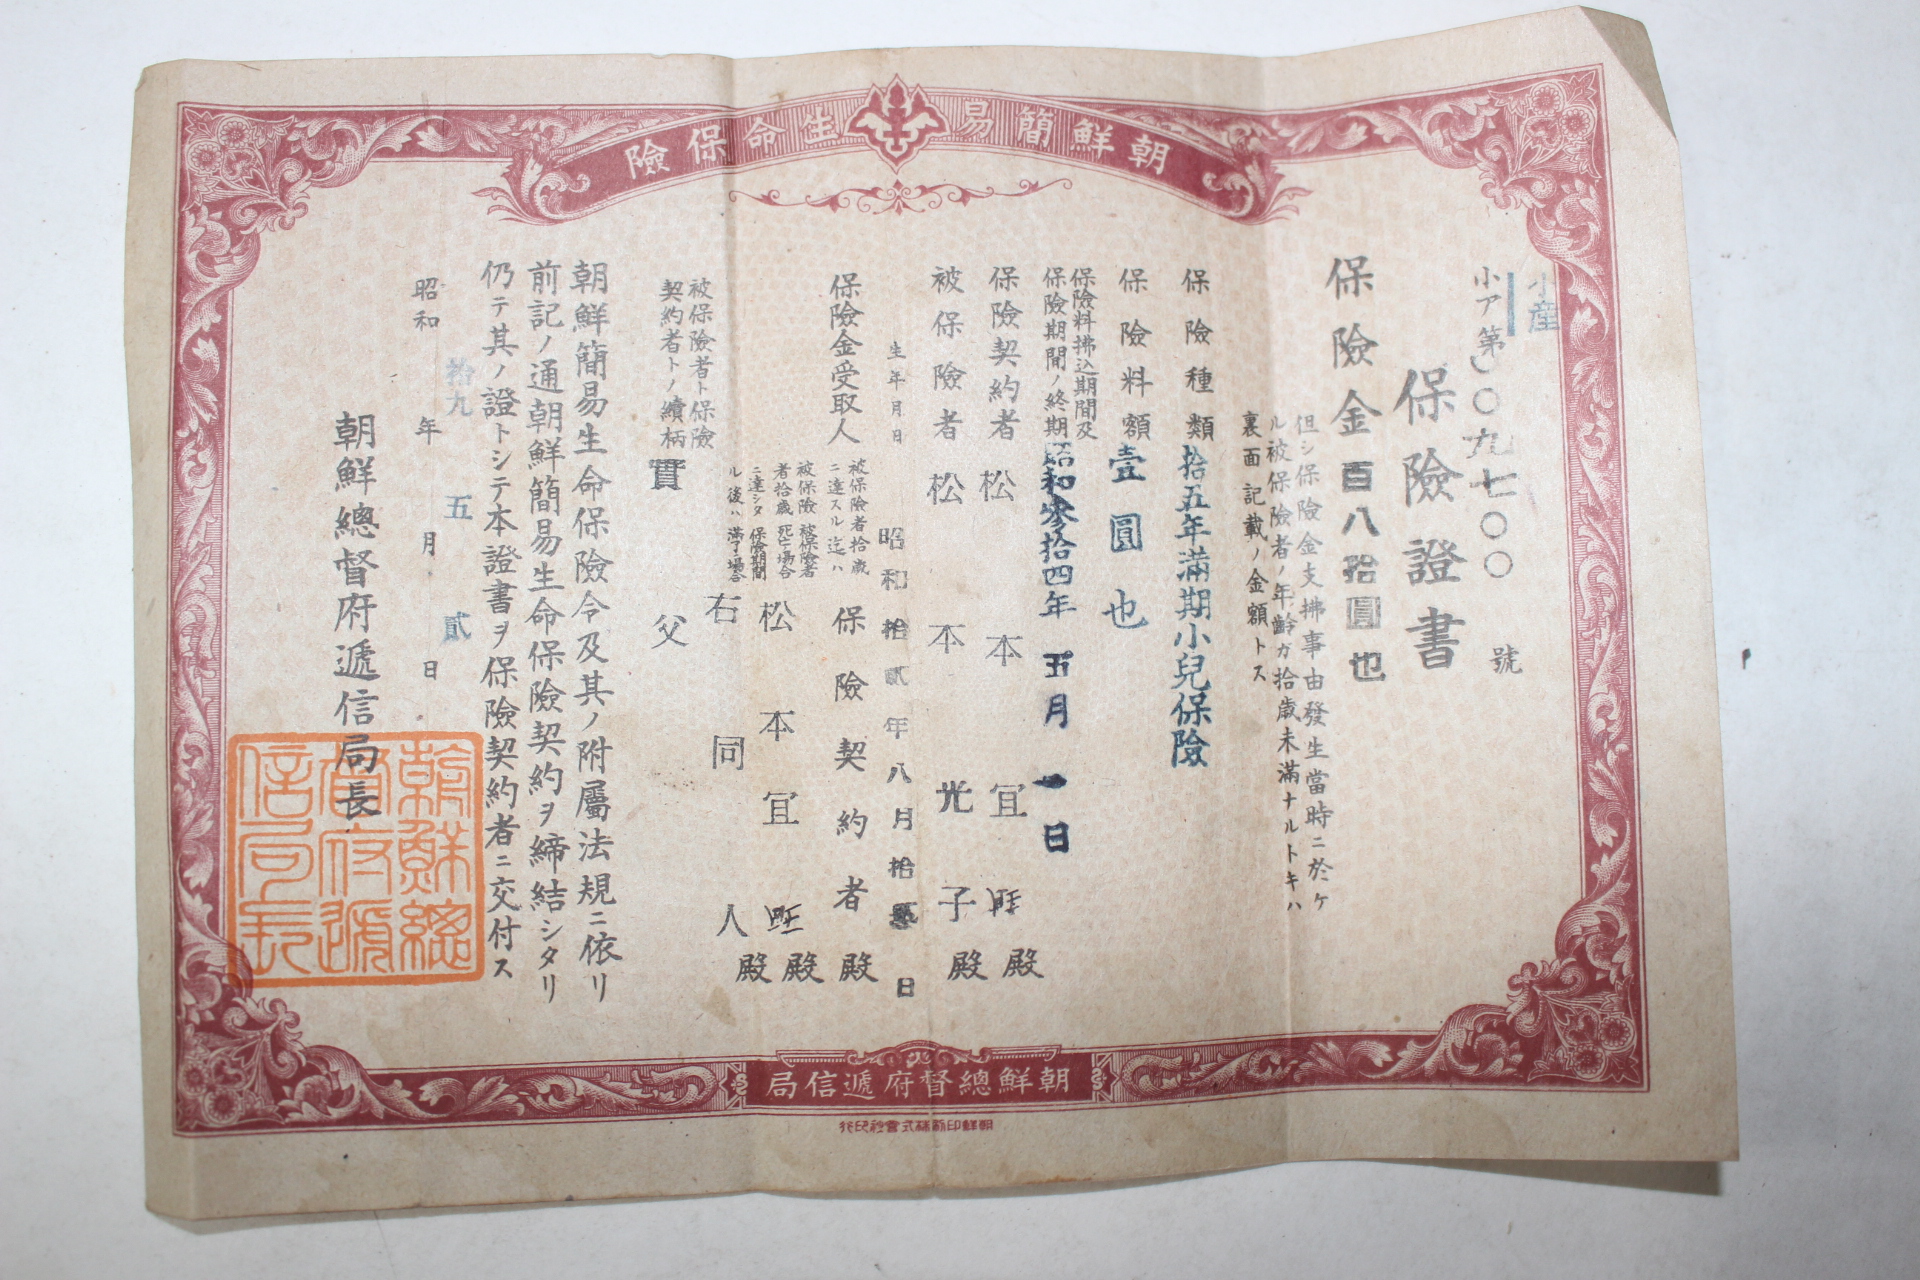 朝鮮簡易生命保險
小産
小ア第〇〇九七〇〇號
保險證書
保險金百八拾圓也
但シ保險金支拂事由發生當時ニ於ケ
ル被保險者ノ年齡ガ拾歲未滿ナルトキハ
裏面記載ノ金額トス
保險種類 拾五年滿期小兒保險
保險料額 壹圓也
保險料拂込期間及
保險期間ノ終期 昭和參拾四年五月一日
保險契約者 松本宜 殿
被保險者 松本光子殿
生年月日 昭和拾貳年八月拾 日
保險金受取人
被保險者拾歲
ニ達スル迄ハ 保險契約者殿
被保險者拾歲ニ達シタル後ハ
被保險者死亡場合 松本宜 殿
保險期間滿了場合 右同人殿
被保險者ト保險
契約者トノ續柄 實父
朝鮮簡易生命保險令及其ノ附屬法規ニ依リ
前記ノ通朝鮮簡易生命保險契約ヲ締結シタリ
仍テ其ノ證トシテ本證書ヲ保險契約者ニ交付ス
昭和拾九年五月貳日
朝鮮總督府遞信局長
朝鮮總督府遞信局長
朝鮮總督府遞信局
朝鮮印刷株式會社印行